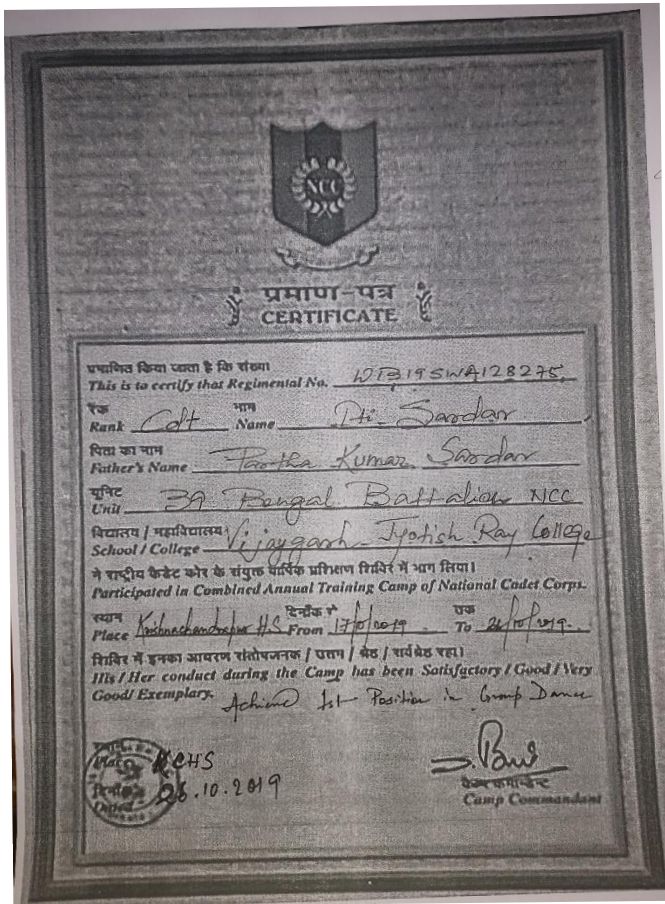 NCC
प्रमाण-पत्र
CERTIFICATE
प्रमाणित किया जाता है कि संख्या
This is to certify that Regimental No. WB19SWA128275
रैंक नाम
Rank Cdt Name Sardar
पिता का नाम
Father's Name Partha Kumar Sardar
यूनिट
Unit 39 Bengal Battalion NCC
विद्यालय / महाविद्यालय
School / College Vijaygarh Jyotish Ray College
ने राष्ट्रीय कैडेट कोर के संयुक्त वार्षिक प्रशिक्षण शिविर में भाग लिया।
Participated in Combined Annual Training Camp of National Cadet Corps.
स्थान दिनाँक से तक
Place Krishnachandrapur H.S From 17/10/2019 To 26/10/2019
शिविर में इनका आचरण संतोषजनक / उत्तम / श्रेष्ठ / सर्वश्रेष्ठ रहा।
His / Her conduct during the Camp has been Satisfactory / Good / Very
Good/ Exemplary. Achieve 1st Position in Group Dance
स्थान
Place KCHS
दिनाँक
Dated 26.10.2019
कैम्प कमान्डेन्ट
Camp Commandant